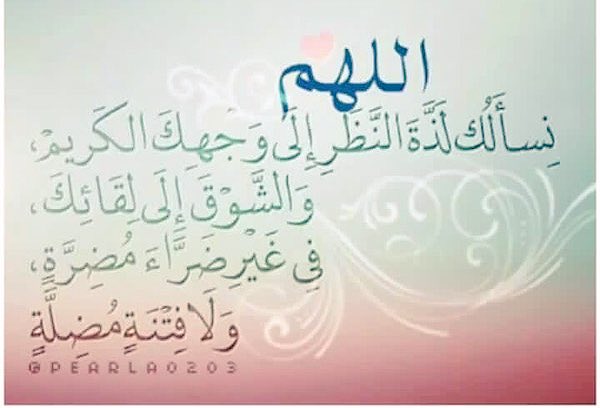 اللهم
نِسأَلُك لَذَّةَ النَّظَرِ إِلَى وَجْهِكَ الكَرِيمْ،
وَالشَّوْقَ إِلَى لِقَائِكَ،
فِي غَيْرِ ضَرَّاءَ مُضِرَّةٍ،
وَلَا فِتْنَةٍ مُضِلَّةٍ
@PEARLA0203